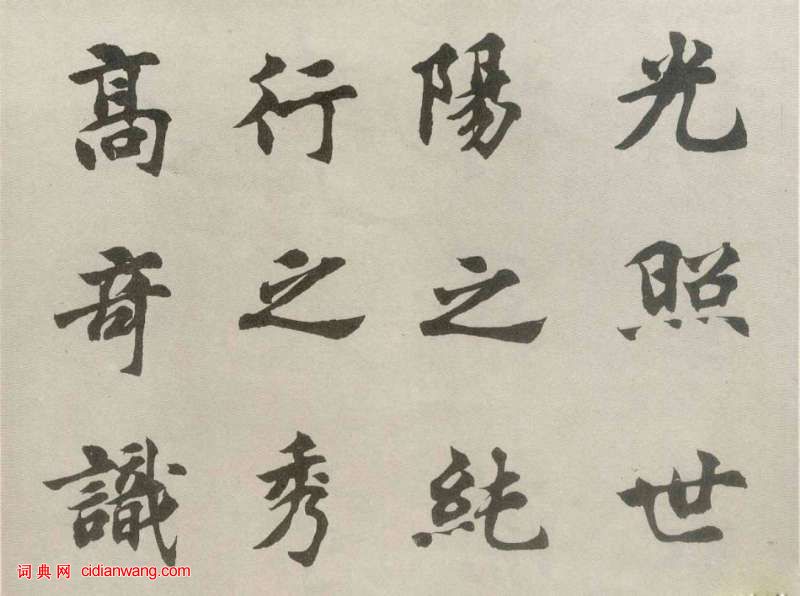 光照世
陽之純
行之秀
高奇識
词典网 cidianwang.com